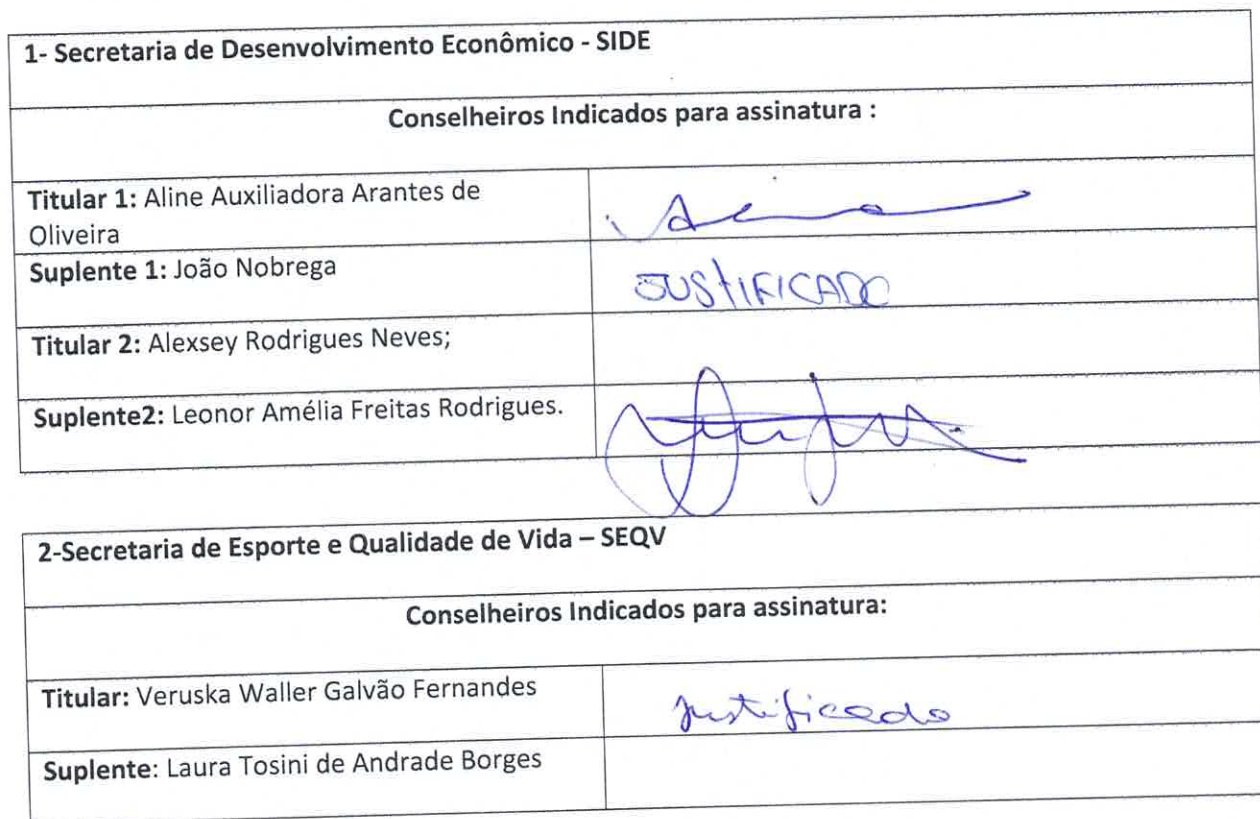 1- Secretaria de Desenvolvimento Econômico - SIDE
Conselheiros Indicados para assinatura :
Titular 1: Aline Auxiliadora Arantes de
Oliveira
Suplente 1: João Nobrega
JUSTIFICADO
Titular 2: Alexsey Rodrigues Neves;
Suplente2: Leonor Amélia Freitas Rodrigues.
2-Secretaria de Esporte e Qualidade de Vida – SEQV
Conselheiros Indicados para assinatura:
Titular: Veruska Waller Galvão Fernandes
Justificado
Suplente: Laura Tosini de Andrade Borges